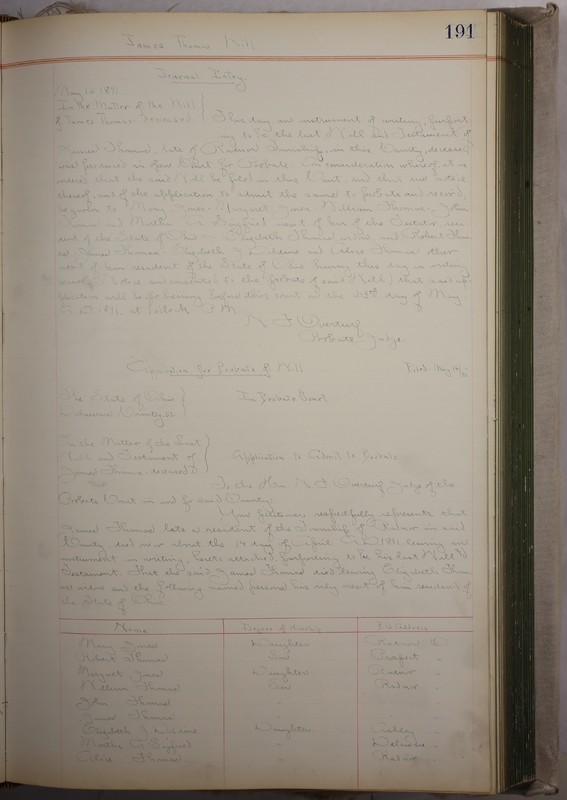 191
James Thomas Will
Journal Entry.
May 16 1891
In the Matter of the Will
of James Thomas Deceased
This day an instrument of writing, purport
ing to be the last Will and Testament of
James Thomas, late of Radnor Township, in this County, deceased
was produced in open Court for Probate. In consideration whereof, it is
ordered that the said Will be filed in this Court, and that due notice
thereof, and of the application to admit the same to probate and record,
be given to Mary Jones, Margaret Jones William Thomas, John
Thomas and Martha next of kin of the Testator, resi
dent of the State of Ohio Elizabeth Thomas widow and Robert Thom
as, James Thomas, Elizabeth J. Thomas other
next of kin resident of the State of Ohio having this day in writing
notice and consented to the probate of said Will, that said ap
plication will be for hearing before this court on the day of May
A.D. 1891, at o'clock M
Probate Judge.
Application for Probate of Will
Filed May 16/91
The State of Ohio
Delaware County, ss
In Probate Court
In the Matter of the Last
Will and Testament of
James Thomas deceased
Application to Admit to Probate
To the Hon Judge of the
Probate Court in and for said County:
Your petitioner respectfully represents that
James Thomas late a resident of the Township of Radnor in said
County died on or about the 14 day of April A.D. 1891 leaving an
instrument in writing, hereto attached, purporting to be his last Will &
Testament. That the said James Thomas died leaving Elizabeth Thom
as widow and the following named persons his only next of kin resident of
the State of Ohio
Name Degree of Kinship P.O. Address
Mary Jones Daughter Radnor O
Robert Thomas Son Prospect "
Margaret Jones Daughter Radnor "
William Thomas Son Radnor "
John Thomas " "
James Thomas " "
Elizabeth J. Daughter Ashley "
Martha " Delaware "
Thomas " Radnor "